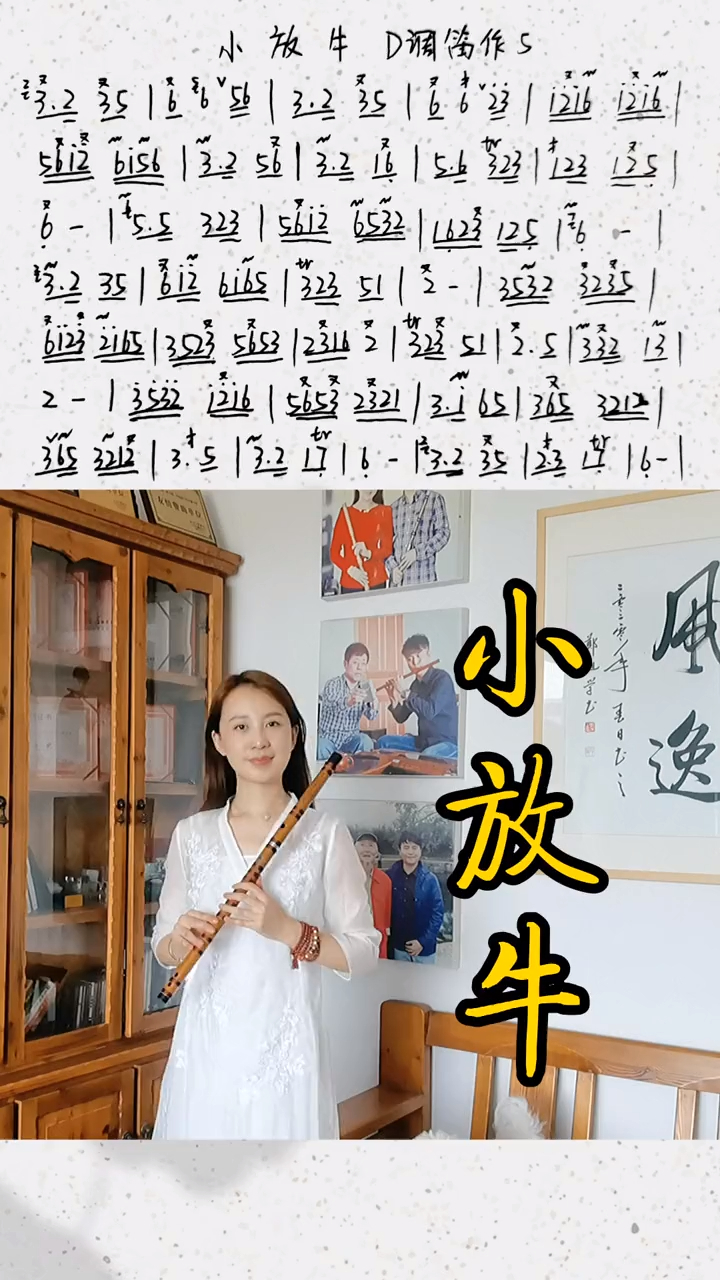 小 放 牛 D调笛作5
3.2 35 | 6 6 56 | 3.2 35 | 6 6 23 | 1216 1216 |
5612 6156 | 3.2 56 | 3.2 16 | 5.6 323 | 123 135 |
6 - | 5.5 323 | 5612 6532 | 1623 125 | 6 - |
3.2 35 | 612 6165 | 323 51 | 2 - | 3532 3235 |
6123 2165 | 3523 5653 | 2316 2 | 323 51 | 2.5 | 332 13 |
2 - | 3532 1216 | 5653 2321 | 3.1 65 | 365 3212 |
365 3212 | 3.5 | 3.2 17 | 6 - | 3.2 35 | 2.3 17 | 6 - |
小
放
牛
风
逸